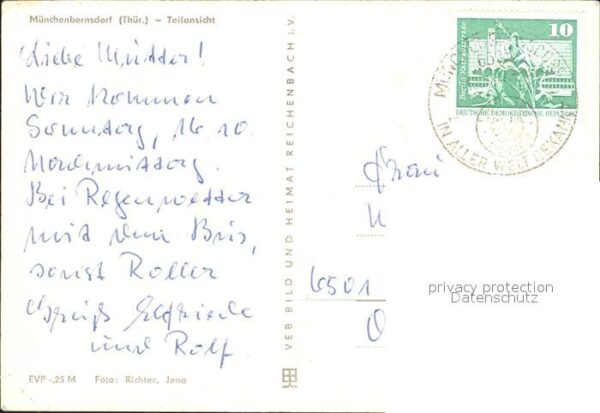 Münchenbernsdorf (Thür.) – Teilansicht
Liebe Mutter!
Wir kommen
Sonntag, 16.10.
Nachmittag.
Bei Regenwetter
mit dem Bus,
sonst Roller
Gruß Elfriede
und Rolf
EVP -,25 M Foto: Richter, Jena
VEB BILD UND HEIMAT REICHENBACH I.V.
10
Berlin, Rathausstraße
DEUTSCHE DEMOKRATISCHE REPUBLIK
IN ALLER WELT BEKANNT
Frau
6501
privacy protection
Datenschutz